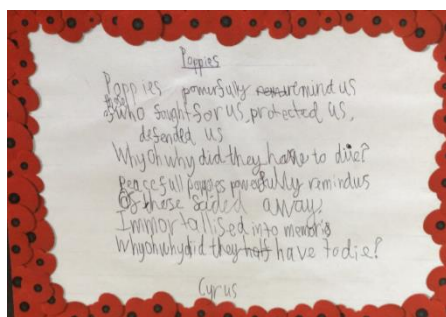 Poppies
Poppies powerfully remind us
of those who fought for us, protected us,
defended us
Why oh why did they have to die?
Peacefull poppies powerfully remind us
Of these faded away,
Immortallised into memories
Why oh why did they have to die?
Cyrus